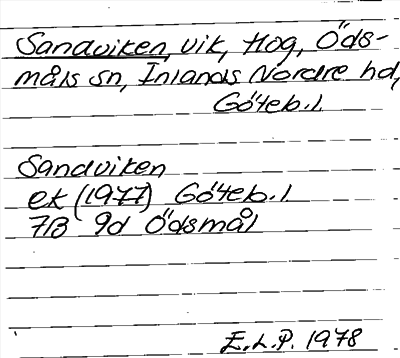 Sandviken, vik, Hog, Öds-
måls sn, Inlands Nordre hd,
Göteb. l
Sandviken
ek (1977) Göteb. l
7B 9d Ödsmål
E.L.P. 1978